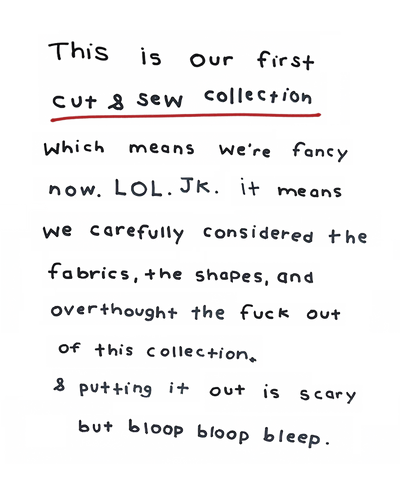 This is our first
cut & sew collection
which means we're fancy
now. LOL. JK. it means
we carefully considered the
fabrics, the shapes, and
overthought the fuck out
of this collection.
& putting it out is scary
but bloop bloop bleep.